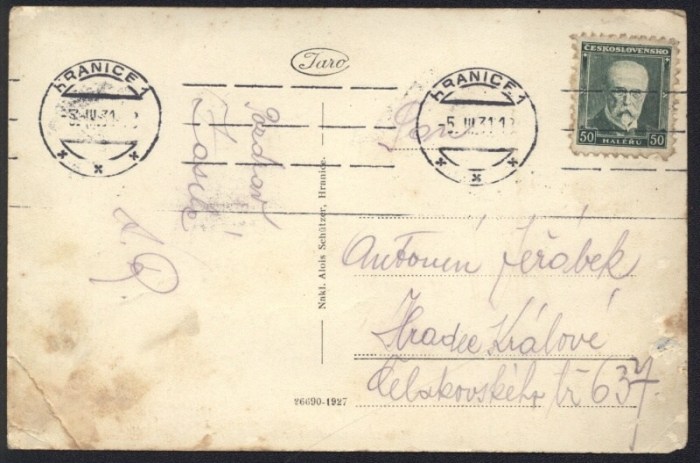 Taro
HRANICE 1
-5.III.31.1
HRANICE 1
-5.III.31.1
ČESKOSLOVENSKO
50 50
HALÉŘŮ
Pozdrav
A. P.
Nakl. Alois Schützer, Hranice.
26690-1927
Pan
Antonín Jeřábek
Hradec Králové
Čelakovského tř 637